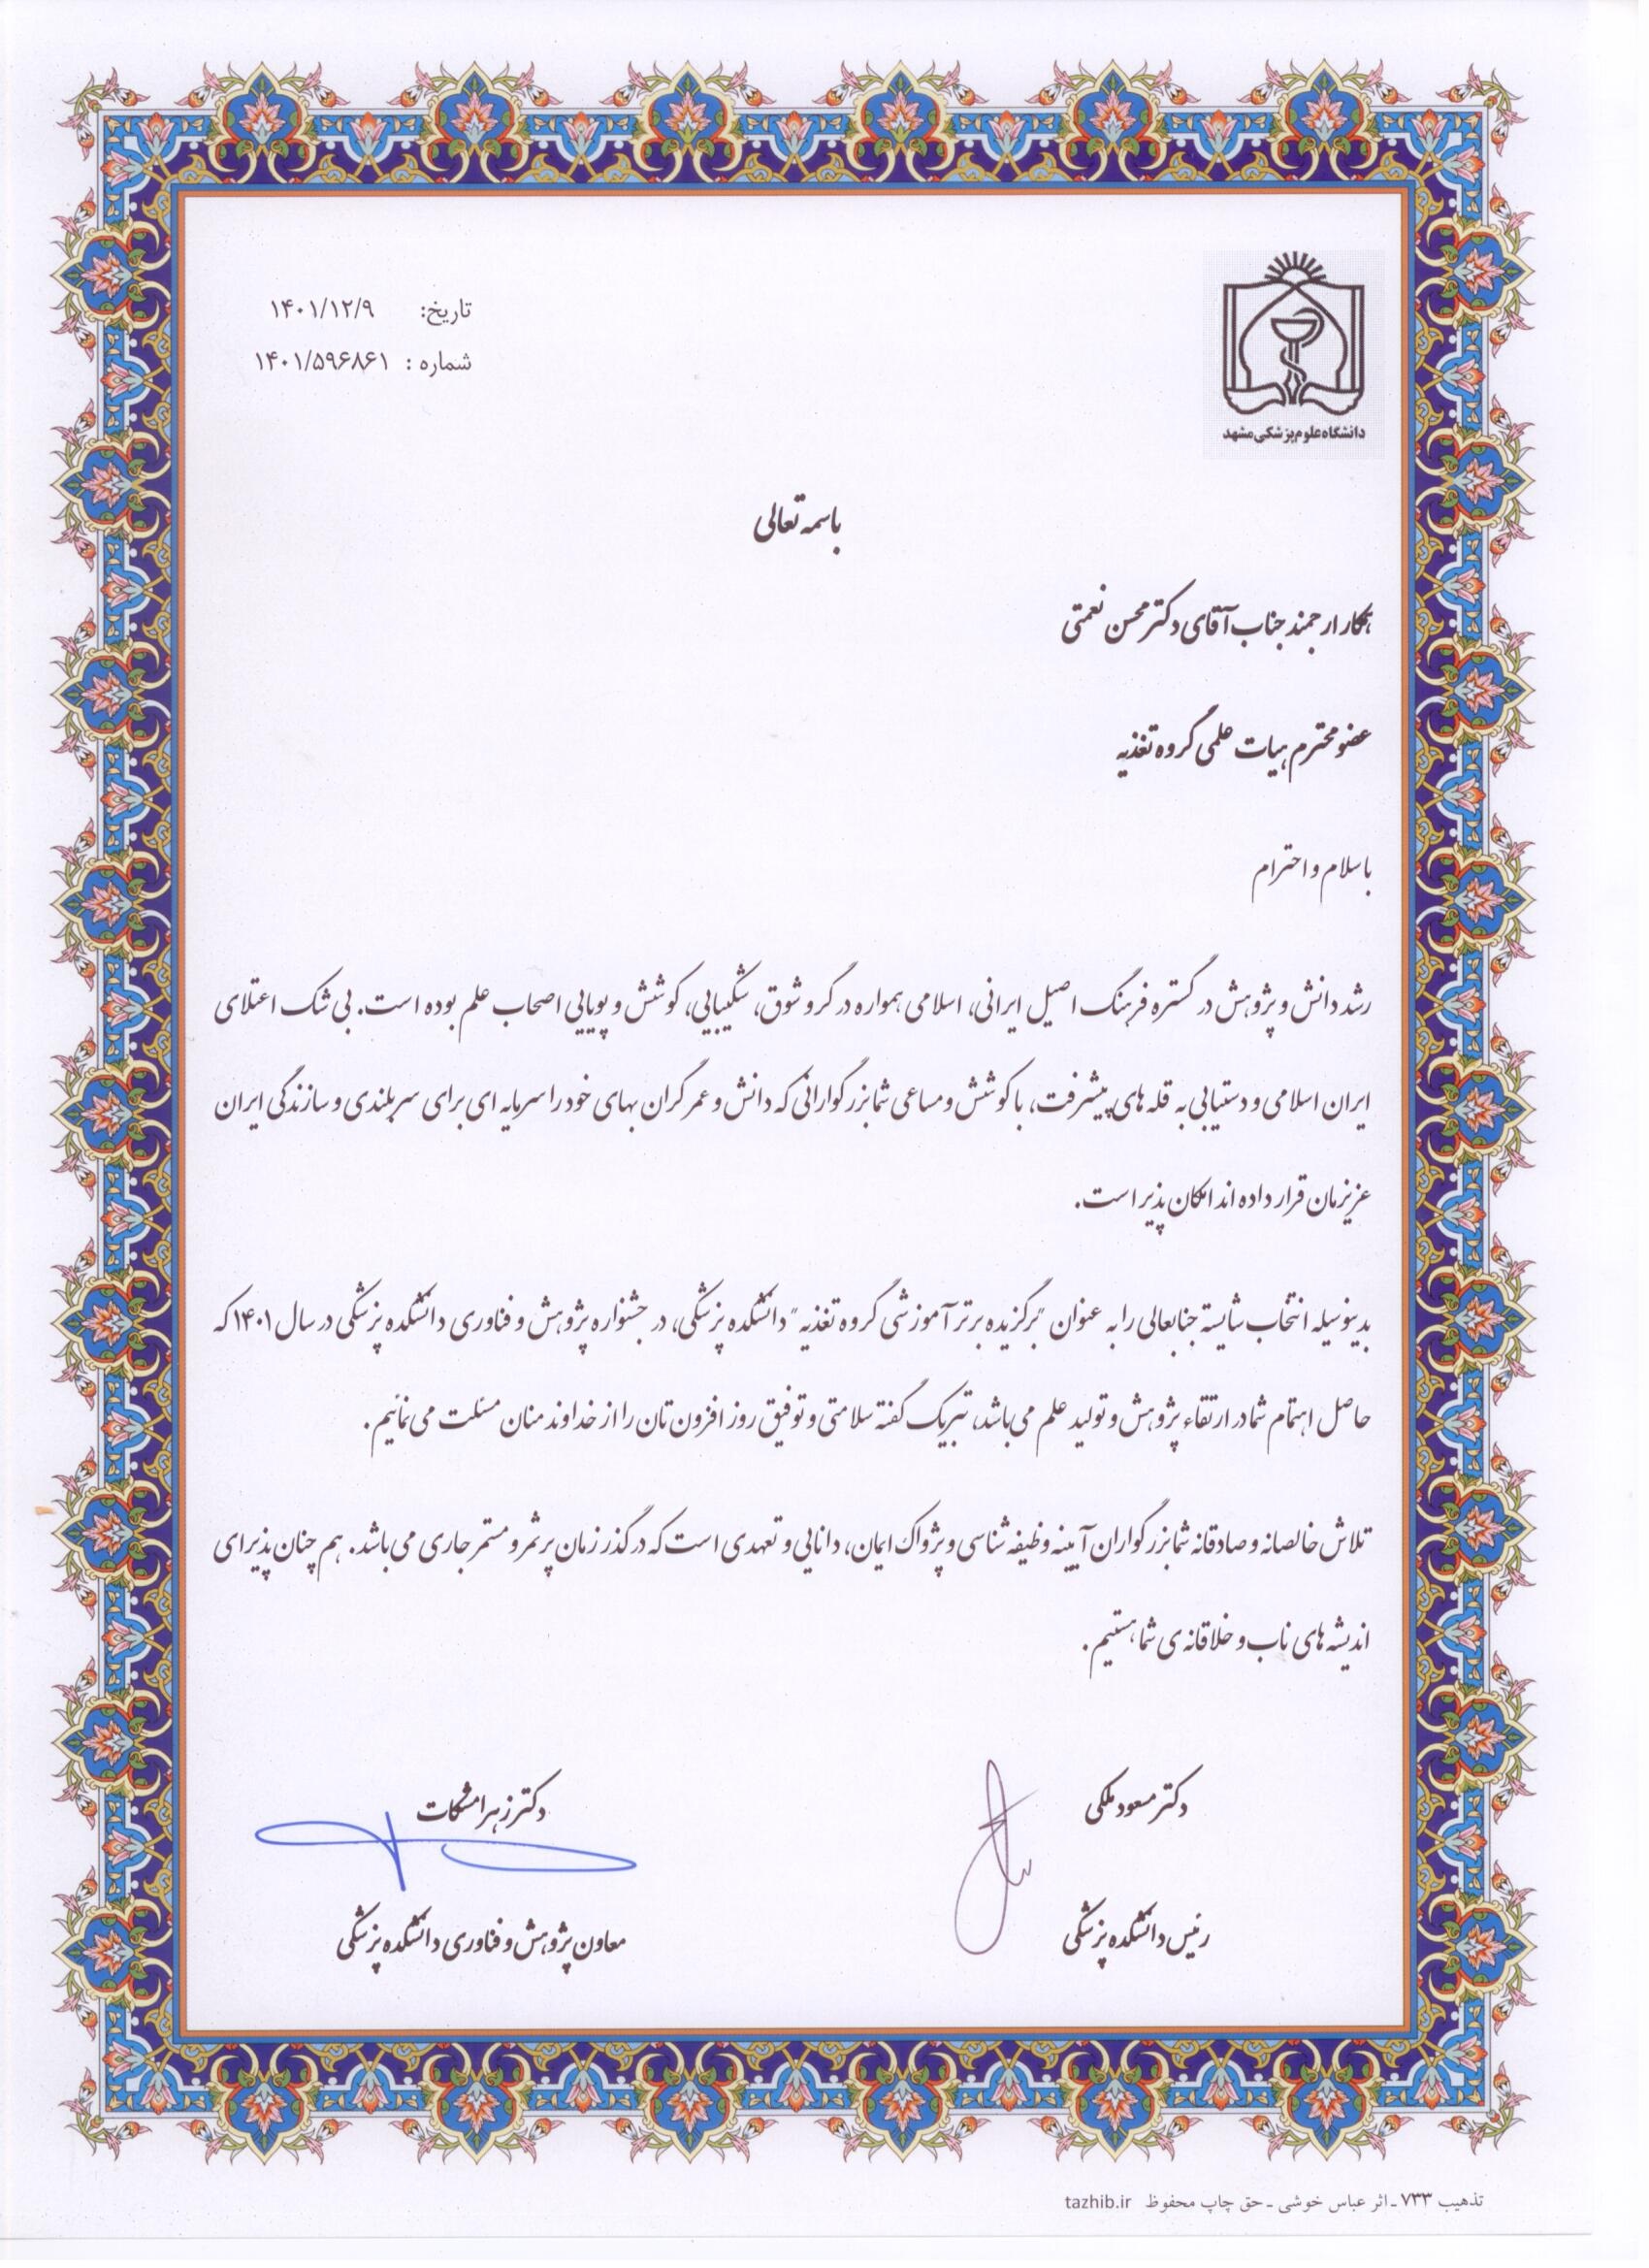 تاریخ: ۱۴۰۱/۱۲/۹
شماره : ۱۴۰۱/۵۹۶۸۶۱
دانشگاه علوم پزشکی مشهد
باسمه تعالی
همکار ارجمند جناب آقای دکتر محسن نعمتی
عضو محترم هیات علمی گروه تغذیه
با سلام و احترام
رشد دانش و پژوهش در گستره فرهنگ اصیل ایرانی، اسلامی همواره در گرو شوق، شکیبایی، کوشش و پویایی اصحاب علم بوده است. بی شک اعتلای
ایران اسلامی و دستیابی به قله های پیشرفت، با کوشش و مساعی شما بزرگوارانی که دانش و عمر گران بهای خود را سرمایه ای برای سربلندی و سازندگی ایران
عزیزمان قرار داده اند امکان پذیر است.
بدینوسیله انتخاب شایسته جنابعالی را به عنوان "برگزیده برتر آموزشی گروه تغذیه" دانشکده پزشکی، در جشنواره پژوهش و فناوری دانشکده پزشکی در سال ۱۴۰۱ که
حاصل اهتمام شما در ارتقاء پژوهش و تولید علم می باشد، تبریک گفته سلامتی و توفیق روز افزون تان را از خداوند منان مسئلت می نمائیم.
تلاش خالصانه و صادقانه شما بزرگواران آیینه وظیفه شناسی و پژواک ایمان، دانایی و تعهدی است که در گذر زمان پرثمر و مستمر جاری می باشد. هم چنان پذیرای
اندیشه های ناب و خلاقانه ی شما هستیم.
دکتر مسعود ملکی
دکتر زهرا مشکات
رئیس دانشکده پزشکی
معاون پژوهش و فناوری دانشکده پزشکی
تذهیب ۷۳۳ ـ اثر عباس خوشی ـ حق چاپ محفوظ tazhib.ir